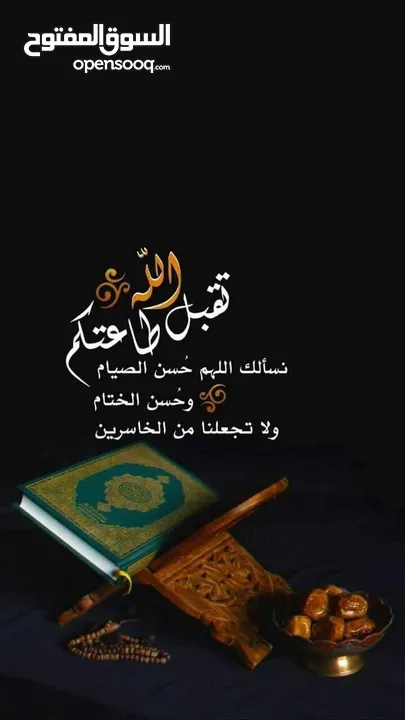 السوق المفتوح
opensooq.com
تقبل الله طاعتكم
نسألك اللهم حُسن الصيام
وحُسن الختام
ولا تجعلنا من الخاسرين